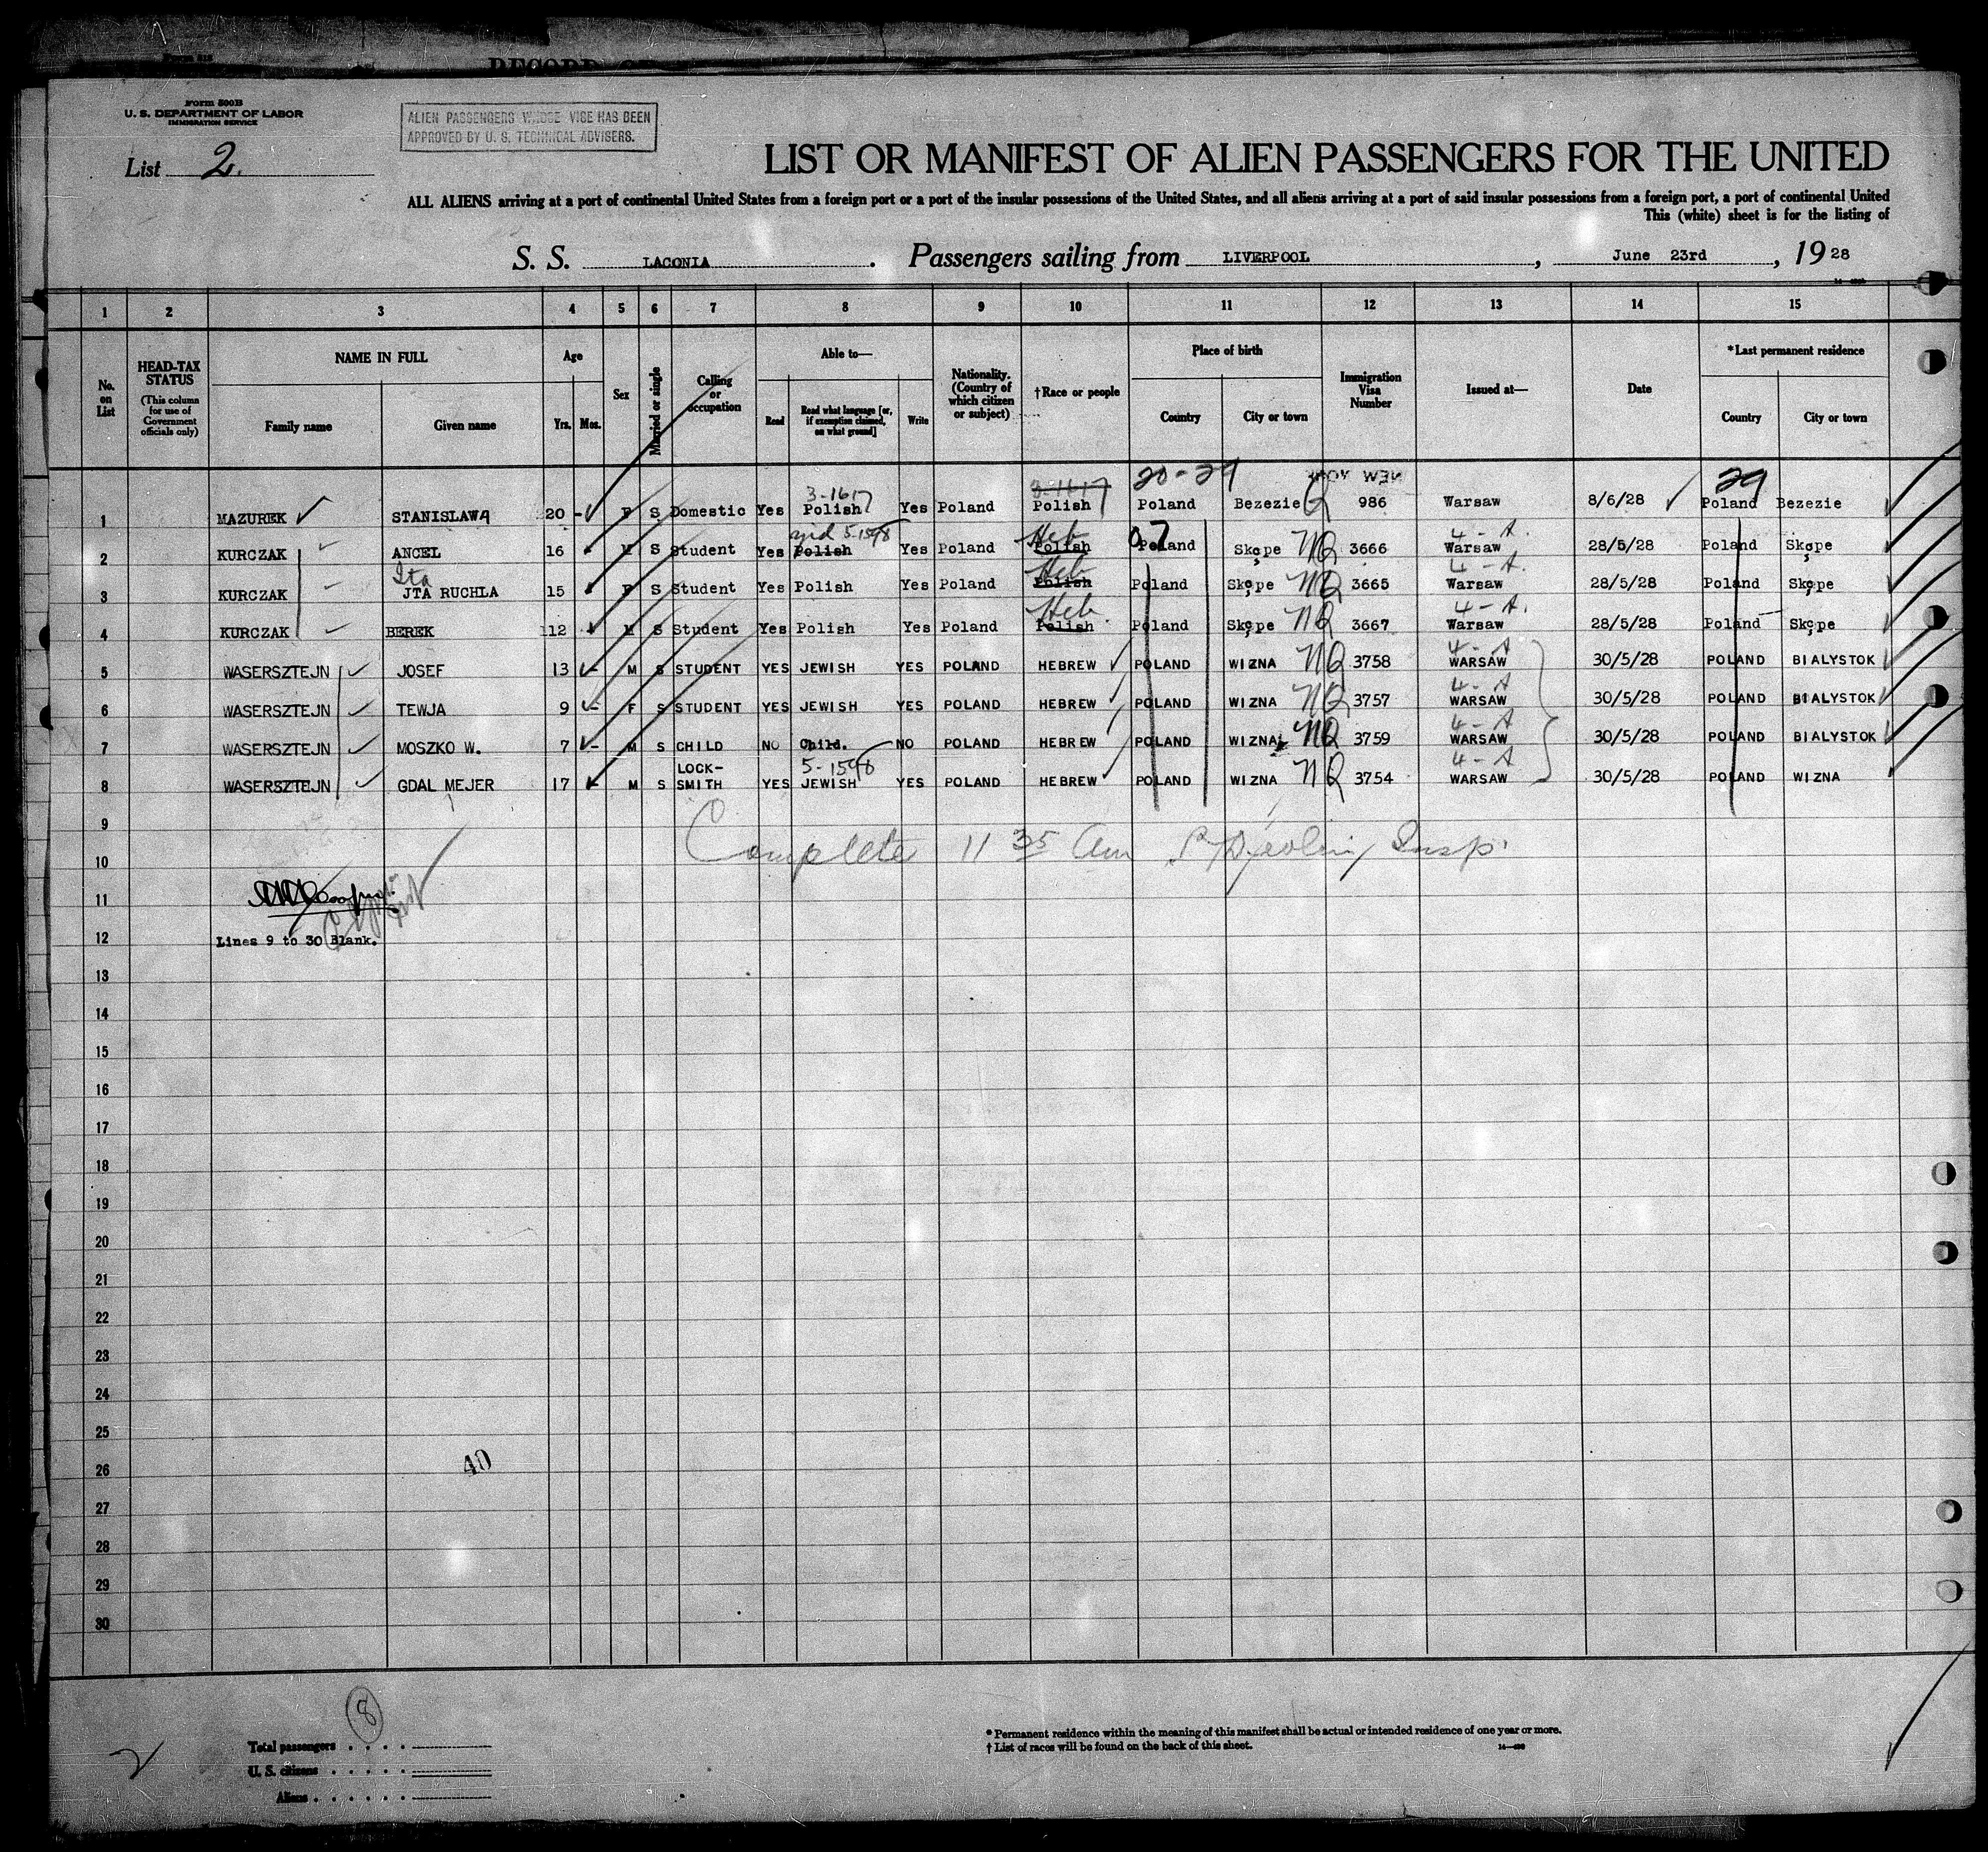 Form 500B
U. S. DEPARTMENT OF LABOR
IMMIGRATION SERVICE
ALIEN PASSENGERS WHOSE VISE HAS BEEN
APPROVED BY U. S. TECHNICAL ADVISERS.
List 2.
LIST OR MANIFEST OF ALIEN PASSENGERS FOR THE UNITED
ALL ALIENS arriving at a port of continental United States from a foreign port or a port of the insular possessions of the United States, and all aliens arriving at a port of said insular possessions from a foreign port, a port of continental United
This (white) sheet is for the listing of
S. S. LACONIA. Passengers sailing from LIVERPOOL, June 23rd, 1928
1 2 3 4 5 6 7 8 9 10 11 12 13 14 15
No. on List
HEAD-TAX STATUS (This column for use of Government officials only)
NAME IN FULL
Family name Given name
Age
Yrs. Mos.
Sex
Married or single
Calling or occupation
Able to—
Read Read what language [or, if exemption claimed, on what ground] Write
Nationality. (Country of which citizen or subject)
†Race or people
Place of birth
Country City or town
Immigration Visa Number
Issued at—
Date
*Last permanent residence
Country City or town
3-1617 3-1617 20-29 NEW YORK 29
1 MAZUREK STANISLAWA 20 - F S Domestic Yes Polish Yes Poland Polish Poland Bezezie Q 986 Warsaw 8/6/28 Poland Bezezie
5-1598 Heb 07 4-A.
2 KURCZAK ANCEL 16 M S Student Yes Polish Yes Poland Polish Poland Skępe NQ 3666 Warsaw 28/5/28 Poland Skępe
Ita Heb 4-A.
3 KURCZAK JTA RUCHLA 15 F S Student Yes Polish Yes Poland Polish Poland Skępe NQ 3665 Warsaw 28/5/28 Poland Skępe
Heb 4-A.
4 KURCZAK BEREK 112 M S Student Yes Polish Yes Poland Polish Poland Skępe NQ 3667 Warsaw 28/5/28 Poland Skępe
4-A
5 WASERSZTEJN JOSEF 13 - M S STUDENT YES JEWISH YES POLAND HEBREW POLAND WIZNA NQ 3758 WARSAW 30/5/28 POLAND BIALYSTOK
4-A
6 WASERSZTEJN TEWJA 9 - F S STUDENT YES JEWISH YES POLAND HEBREW POLAND WIZNA NQ 3757 WARSAW 30/5/28 POLAND BIALYSTOK
4-A
7 WASERSZTEJN MOSZKO W. 7 - M S CHILD NO Child. NO POLAND HEBREW POLAND WIZNA NQ 3759 WARSAW 30/5/28 POLAND BIALYSTOK
LOCK- 5-1598 4-A
8 WASERSZTEJN GDAL MEJER 17 - M S SMITH YES JEWISH YES POLAND HEBREW POLAND WIZNA NQ 3754 WARSAW 30/5/28 POLAND WIZNA
9
10 Complete 11 35 am Insp.
11
12 Lines 9 to 30 Blank.
13
14
15
16
17
18
19
20
21
22
23
24
25
26 40
27
28
29
30
8
Total passengers
U. S. citizens
Aliens
* Permanent residence within the meaning of this manifest shall be actual or intended residence of one year or more.
† List of races will be found on the back of this sheet.